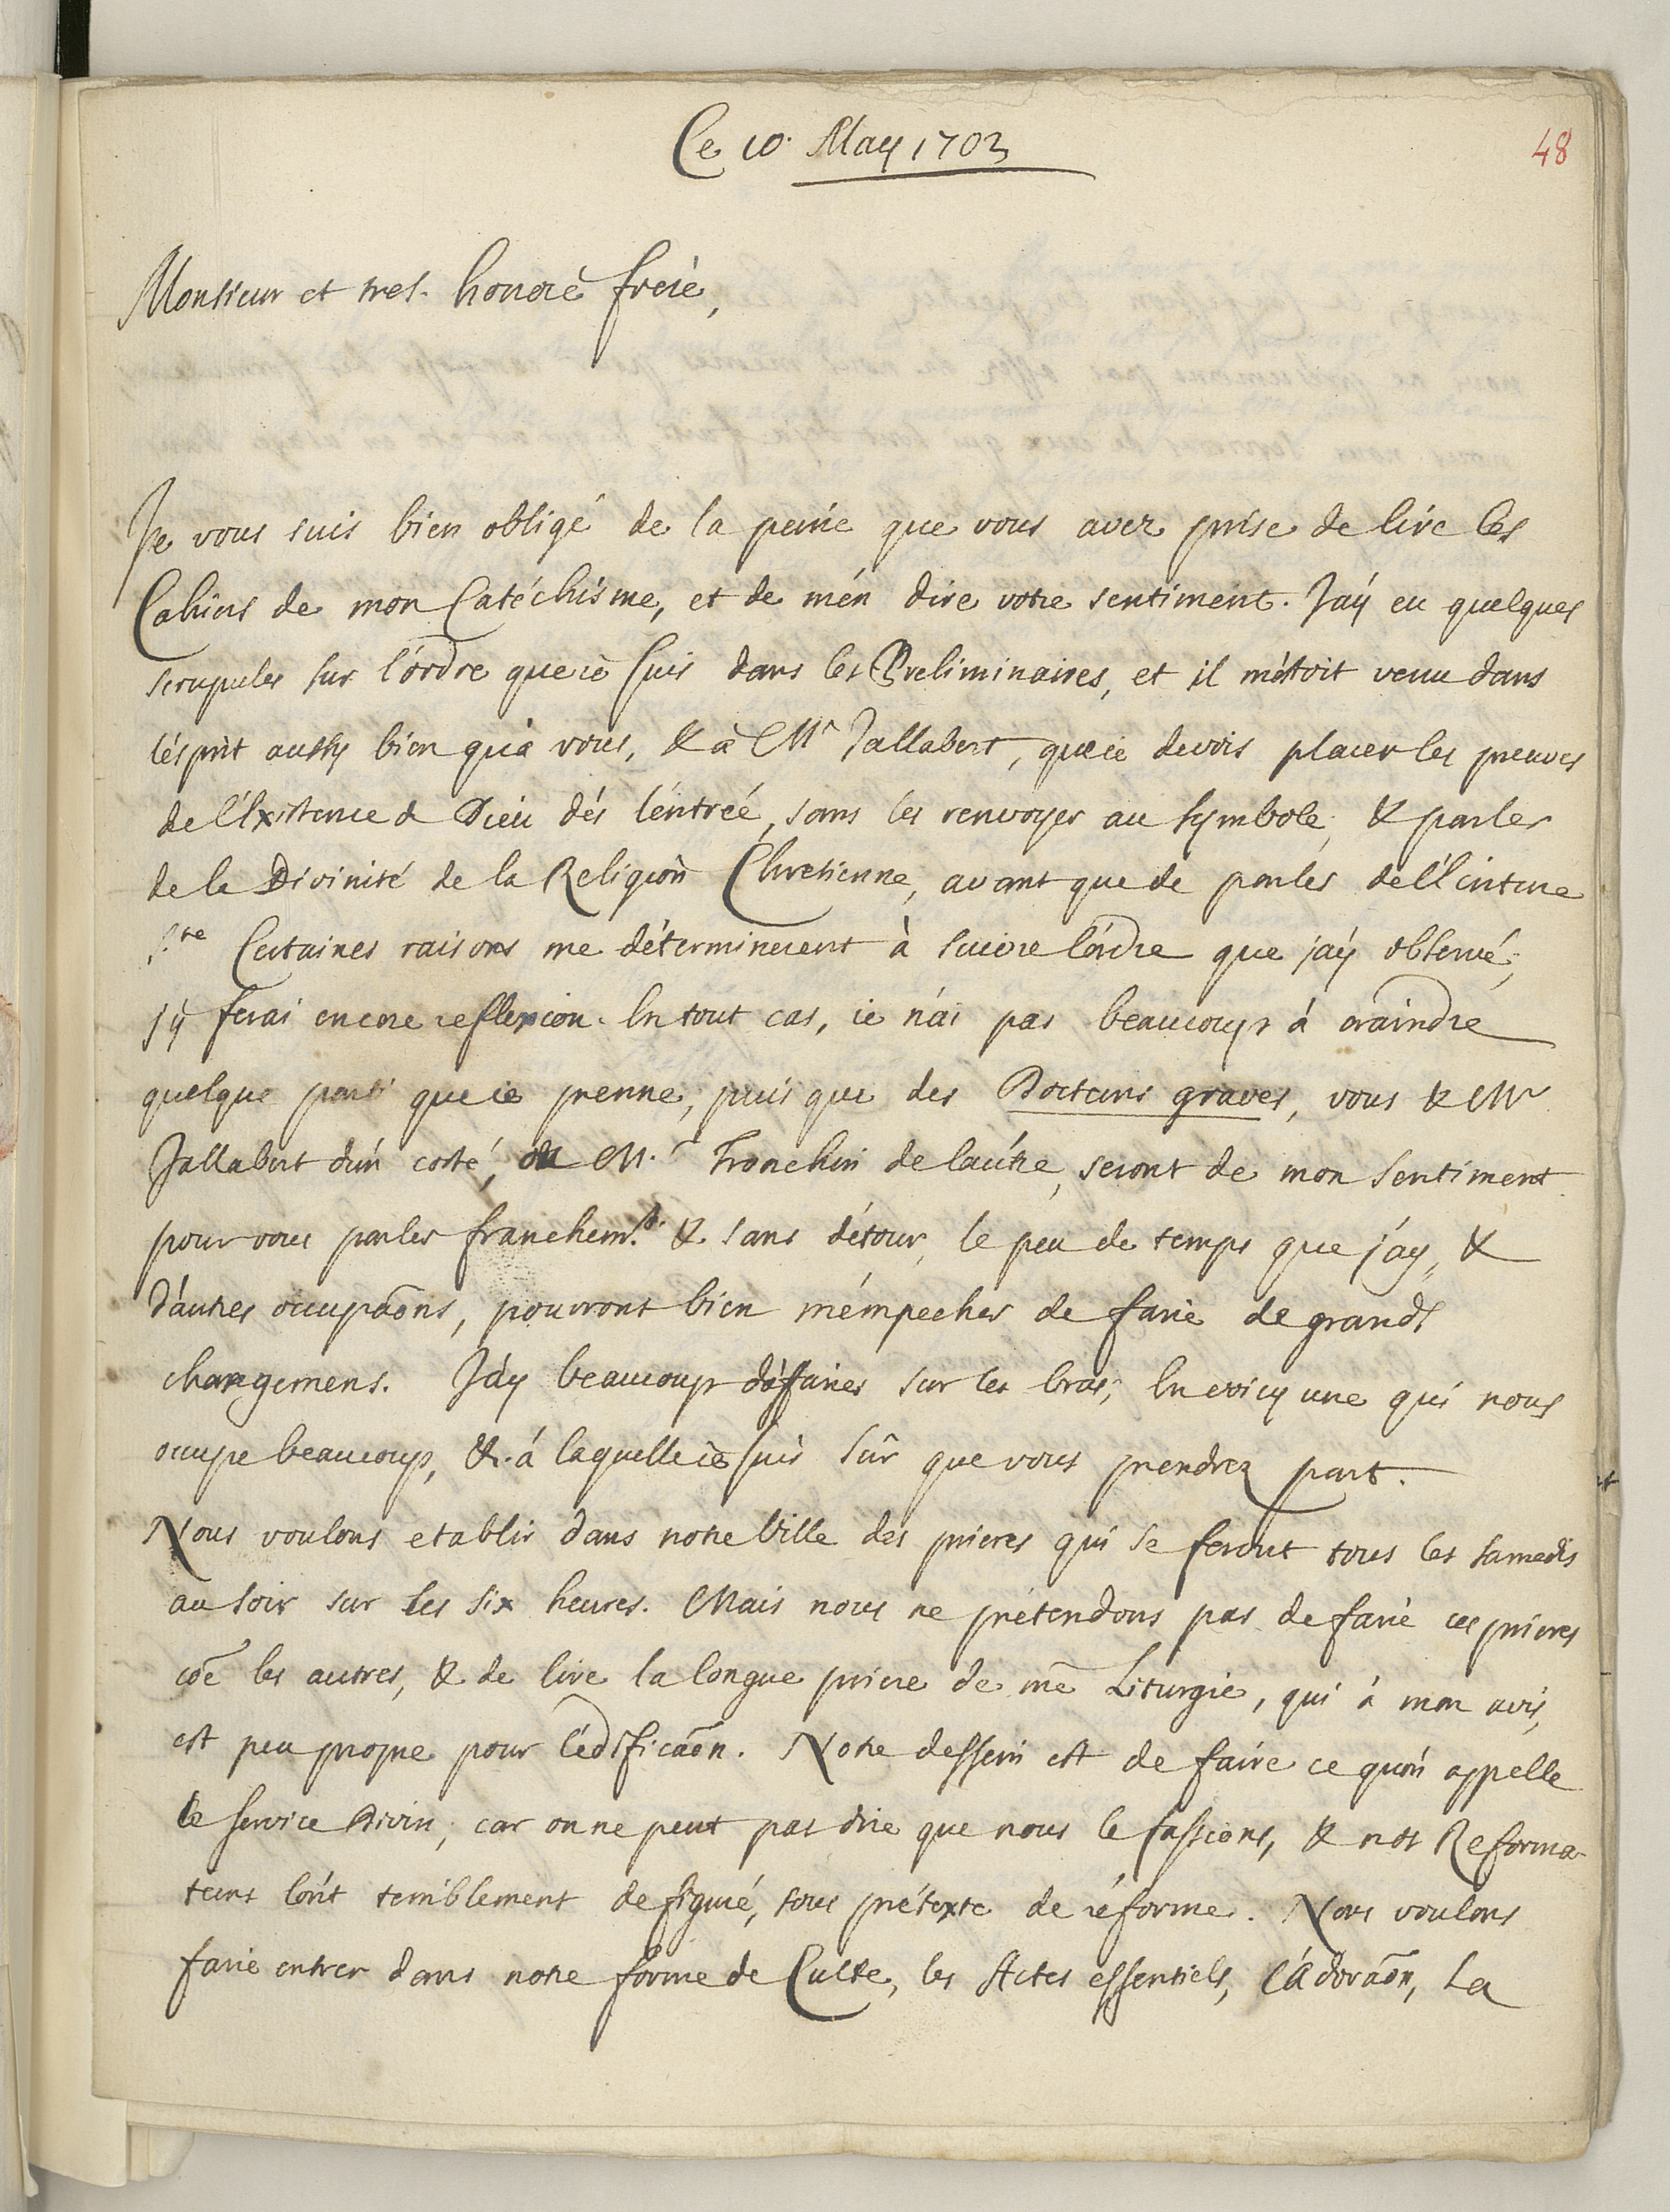 Ce 10. May 1702
48
Monsieur et tres. honoré frere,
Je vous suis bien obligé de la peine que vous avez prise de lire les
Cahiers de mon Catéchisme, et de m'en dire votre sentiment. J'ay eu quelques
scrupules sur l'ordre que ie suis dans les Preliminaires, et il m'étoit venu dans
l'esprit aussy bien qu'a vous, & a Mr Jallabert, que ie devois placer les preuves
de l'Existence de Dieu dés l'entrée, sans les renvoyer au symbole, & parler
de la Divinité de la Religion Chretienne, avant que de parler de l'Ecriture
s.te Certaines raisons me déterminerent à suivre l'ordre que j'ay observé;
j'y ferai encore reflexion. En tout cas, ie n'ai pas beaucoup à craindre
quelque parti que ie prenne, puis que des Docteurs graves, vous & Mr
Jallabert d'un costé, ou M.r Tronchin de l'autre, seront de mon sentiment
pour vous parler franchem.t & sans détour, le peu de temps que j'ay, &
d'autres occupãons, pourront bien m'empecher de faire de grands
changemens. J'ay beaucoup d'affaires sur les bras; En voicy une qui nous
occupe beaucoup, & à laquelle ie suis sûr que vous prendrez part.
Nous voulons etablir dans notre Ville des prieres qui se feront tous les samedis
au soir sur les six heures. Mais nous ne prétendons pas de faire ces prieres
cõe les autres, & de lire la longue priere de nr̃e Liturgie, qui à mon avis,
est peu propre pour l'édificãon. Notre dessein est de faire ce qu'on appelle
le service Divin, car on ne peut pas dire que nous le fassions, & nos Reforma-
teurs l'ont terriblement defiguré, sous prétexte de réforme. Nous voulons
faire entrer dans notre forme de Culte, les Actes essentiels, l'Adorãon, La